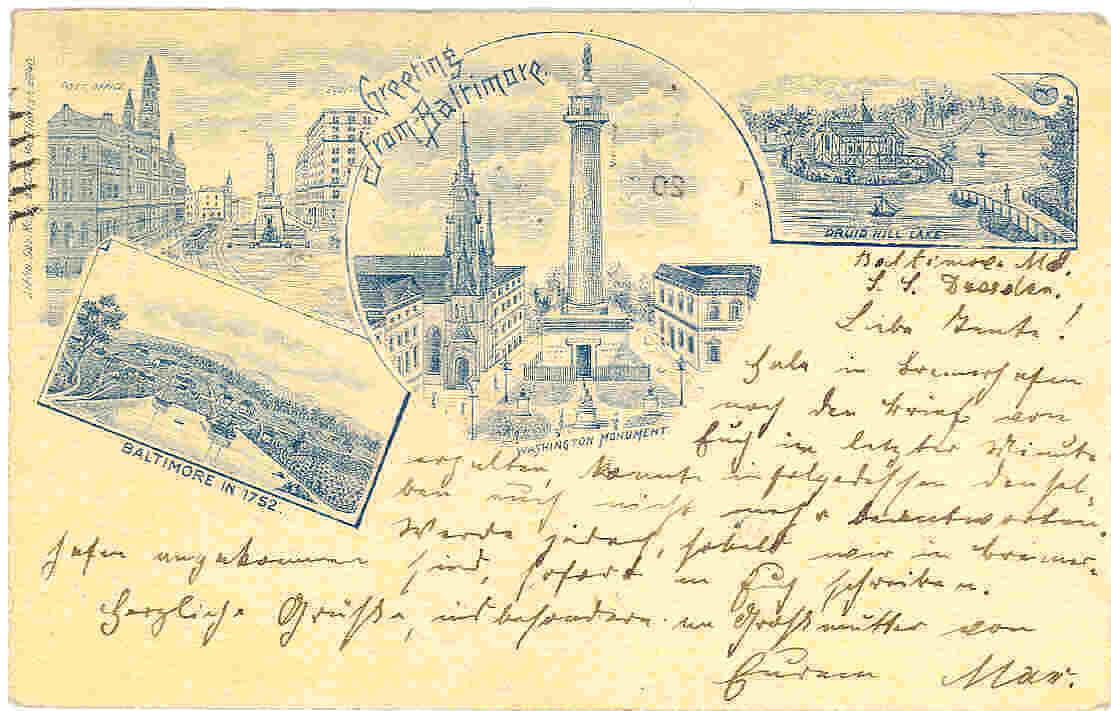 POST OFFICE
Greeting
from Baltimore.
DRUID HILL LAKE
BALTIMORE IN 1752.
WASHINGTON MONUMENT.
Baltimore Md.
S. S. Dresden.
Liebe Leute!
Habe in Bremerhafen
noch den Brief von
Euch in letzter Minute
erhalten, konnte infolgedessen densel-
ben auch nicht mehr beantworten.
Werde jedoch, sobald wir in Bremer-
hafen angekommen sind, sofort an Euch schreiben.
Herzliche Grüße, insbesondere an Großmutter von
Eurem Max.